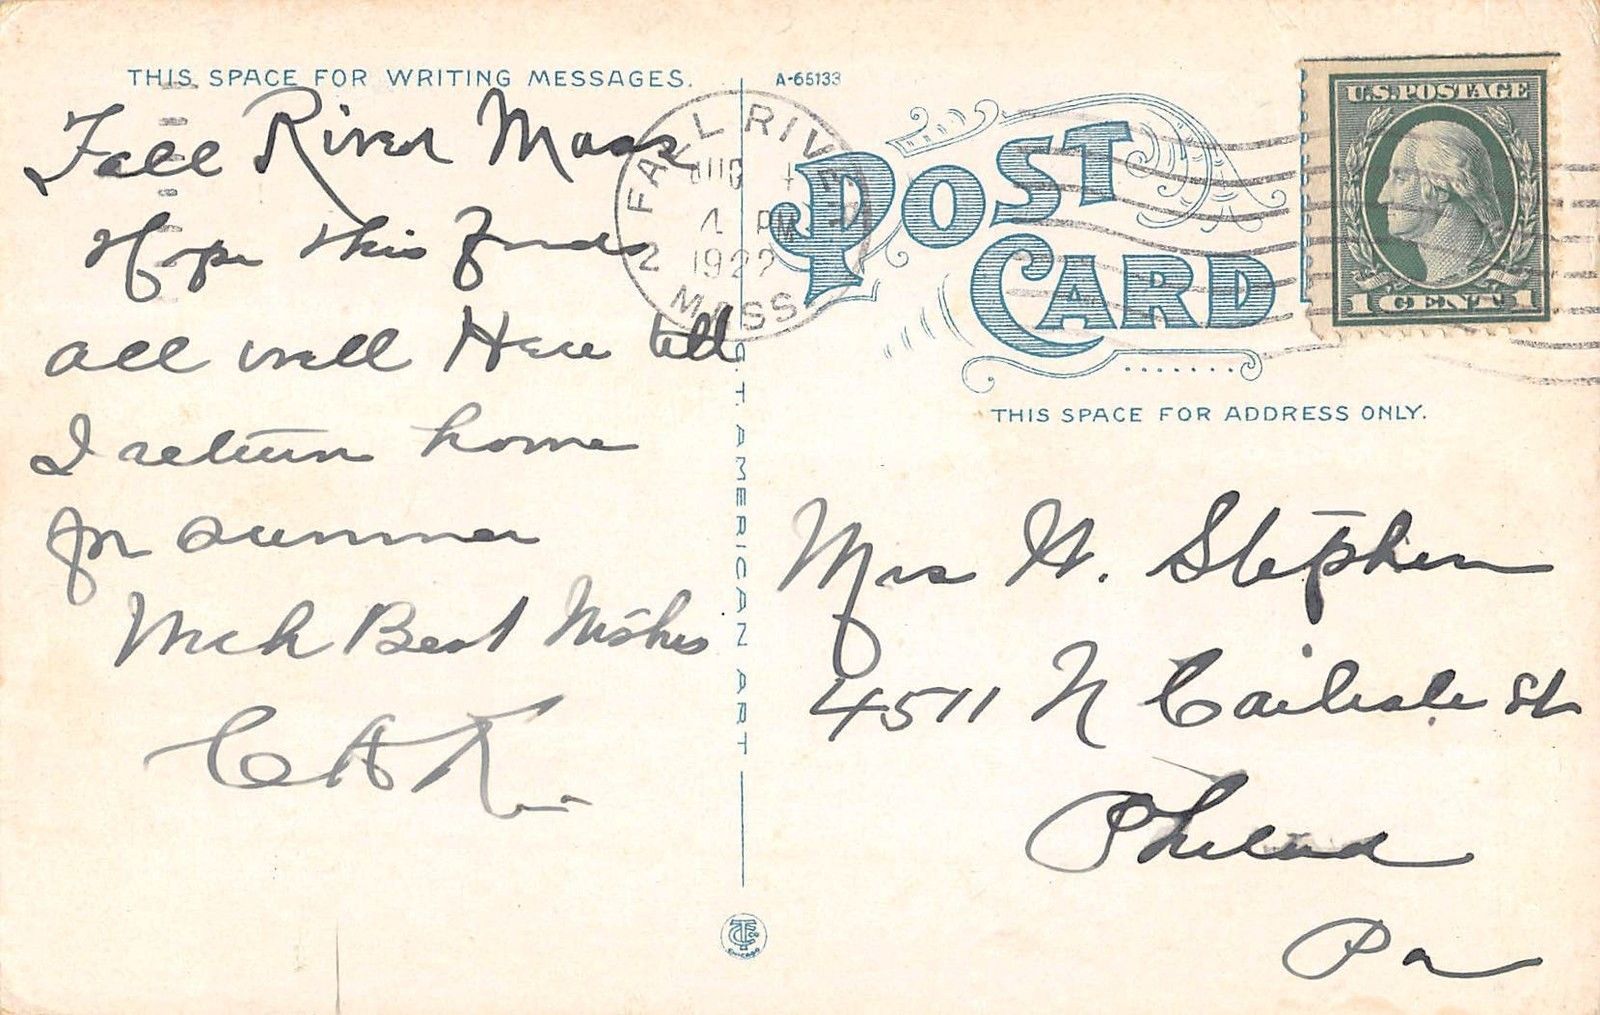 THIS SPACE FOR WRITING MESSAGES.
Fall River Mass
Hope this finds
all well Here till
I return home
for summer
With Best Wishes
C A K
A-65133
FALL RIVER
AUG
PM
1922
MASS
2
POST
CARD
U.S. POSTAGE
1 CENT 1
THIS SPACE FOR ADDRESS ONLY.
Mrs H. Stephen
4511 N Carlisle St
Philad
Pa
C.T. AMERICAN ART
CHICAGO